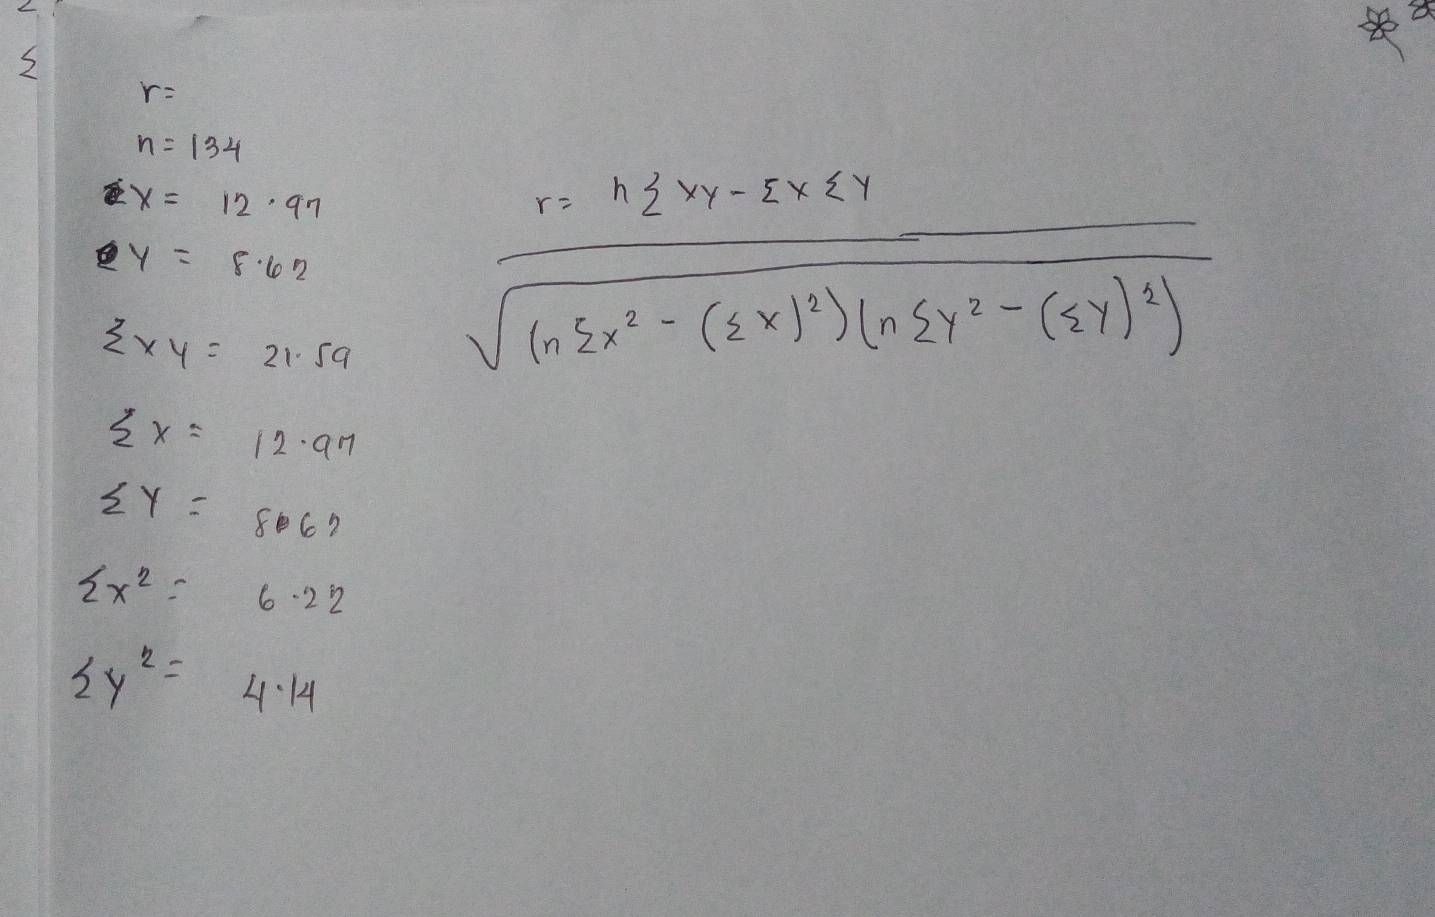 Σ
r=
n=134
ΣX= 12.97
Y= 8.62
Σxy= 21.59
Σx= 12.97
ΣY= 8.62
Σx²= 6.22
Σy²= 4.14
r= nΣxy-ΣxΣY
√(nΣx²-(Σx)²)(nΣy²-(ΣY)²)